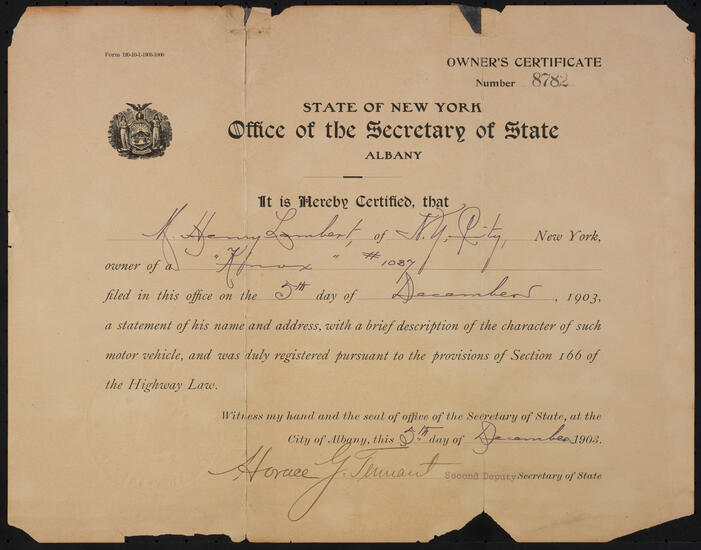 Form 190-10-1-1903-1000
OWNER'S CERTIFICATE
Number 8782
STATE OF NEW YORK
Office of the Secretary of State
ALBANY
It is Hereby Certified, that
M. Henry Lambert, of N.Y. City, New York,
owner of a "Knox" #1037
filed in this office on the 5th day of December, 1903,
a statement of his name and address, with a brief description of the character of such
motor vehicle, and was duly registered pursuant to the provisions of Section 166 of
the Highway Law.
Witness my hand and the seal of office of the Secretary of State, at the
City of Albany, this 5th day of December 1903.
Horace G. Tennant Second Deputy Secretary of State